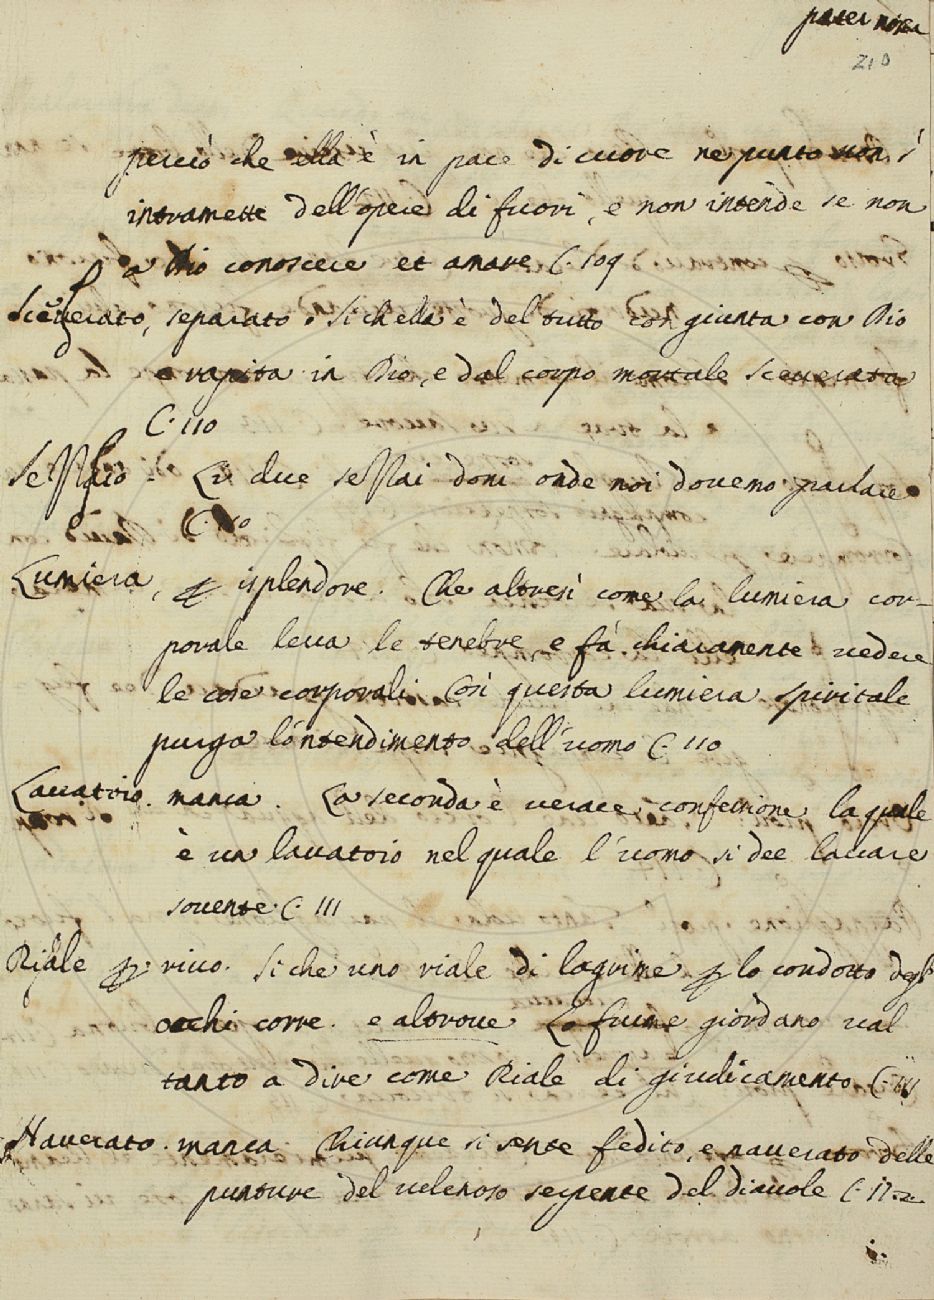 pater noster
210
perciò che ella è in pace di cuore ne punto non s'
intramette dell'opere di fuori, e non intende se non
a Dio conoscere et amare C. 109
Sceverato, separato. Si ch'ella è del tutto con giunta con Dio
e rapita in Dio, e dal corpo mortale sceverata
C. 110
Lo due doni onde noi dovemo parlare
C.
Lumiera, isplendore. Che altresì come la lumiera cor-
porale leva le tenebre, e fà chiaramente vedere
le cose corporali. Così questa lumiera spiritale
purga lo'ntendimento dell'uomo C. 110
Lavatoio. manca. La seconda è verace confessione la quale
è un lavatoio nel quale l'uomo si dee lavare
sovente. C. 111
Riale rivo. Si che uno riale di lagrime lo condotto degl'
occhi corre. e altrove Lo fiume giordano val
tanto a dire come Riale di giudicamento. C. 111
Naverato. manca. Chiunque si sente fedito, e naverato delle
punture del velenoso serpente del diavole C. 112